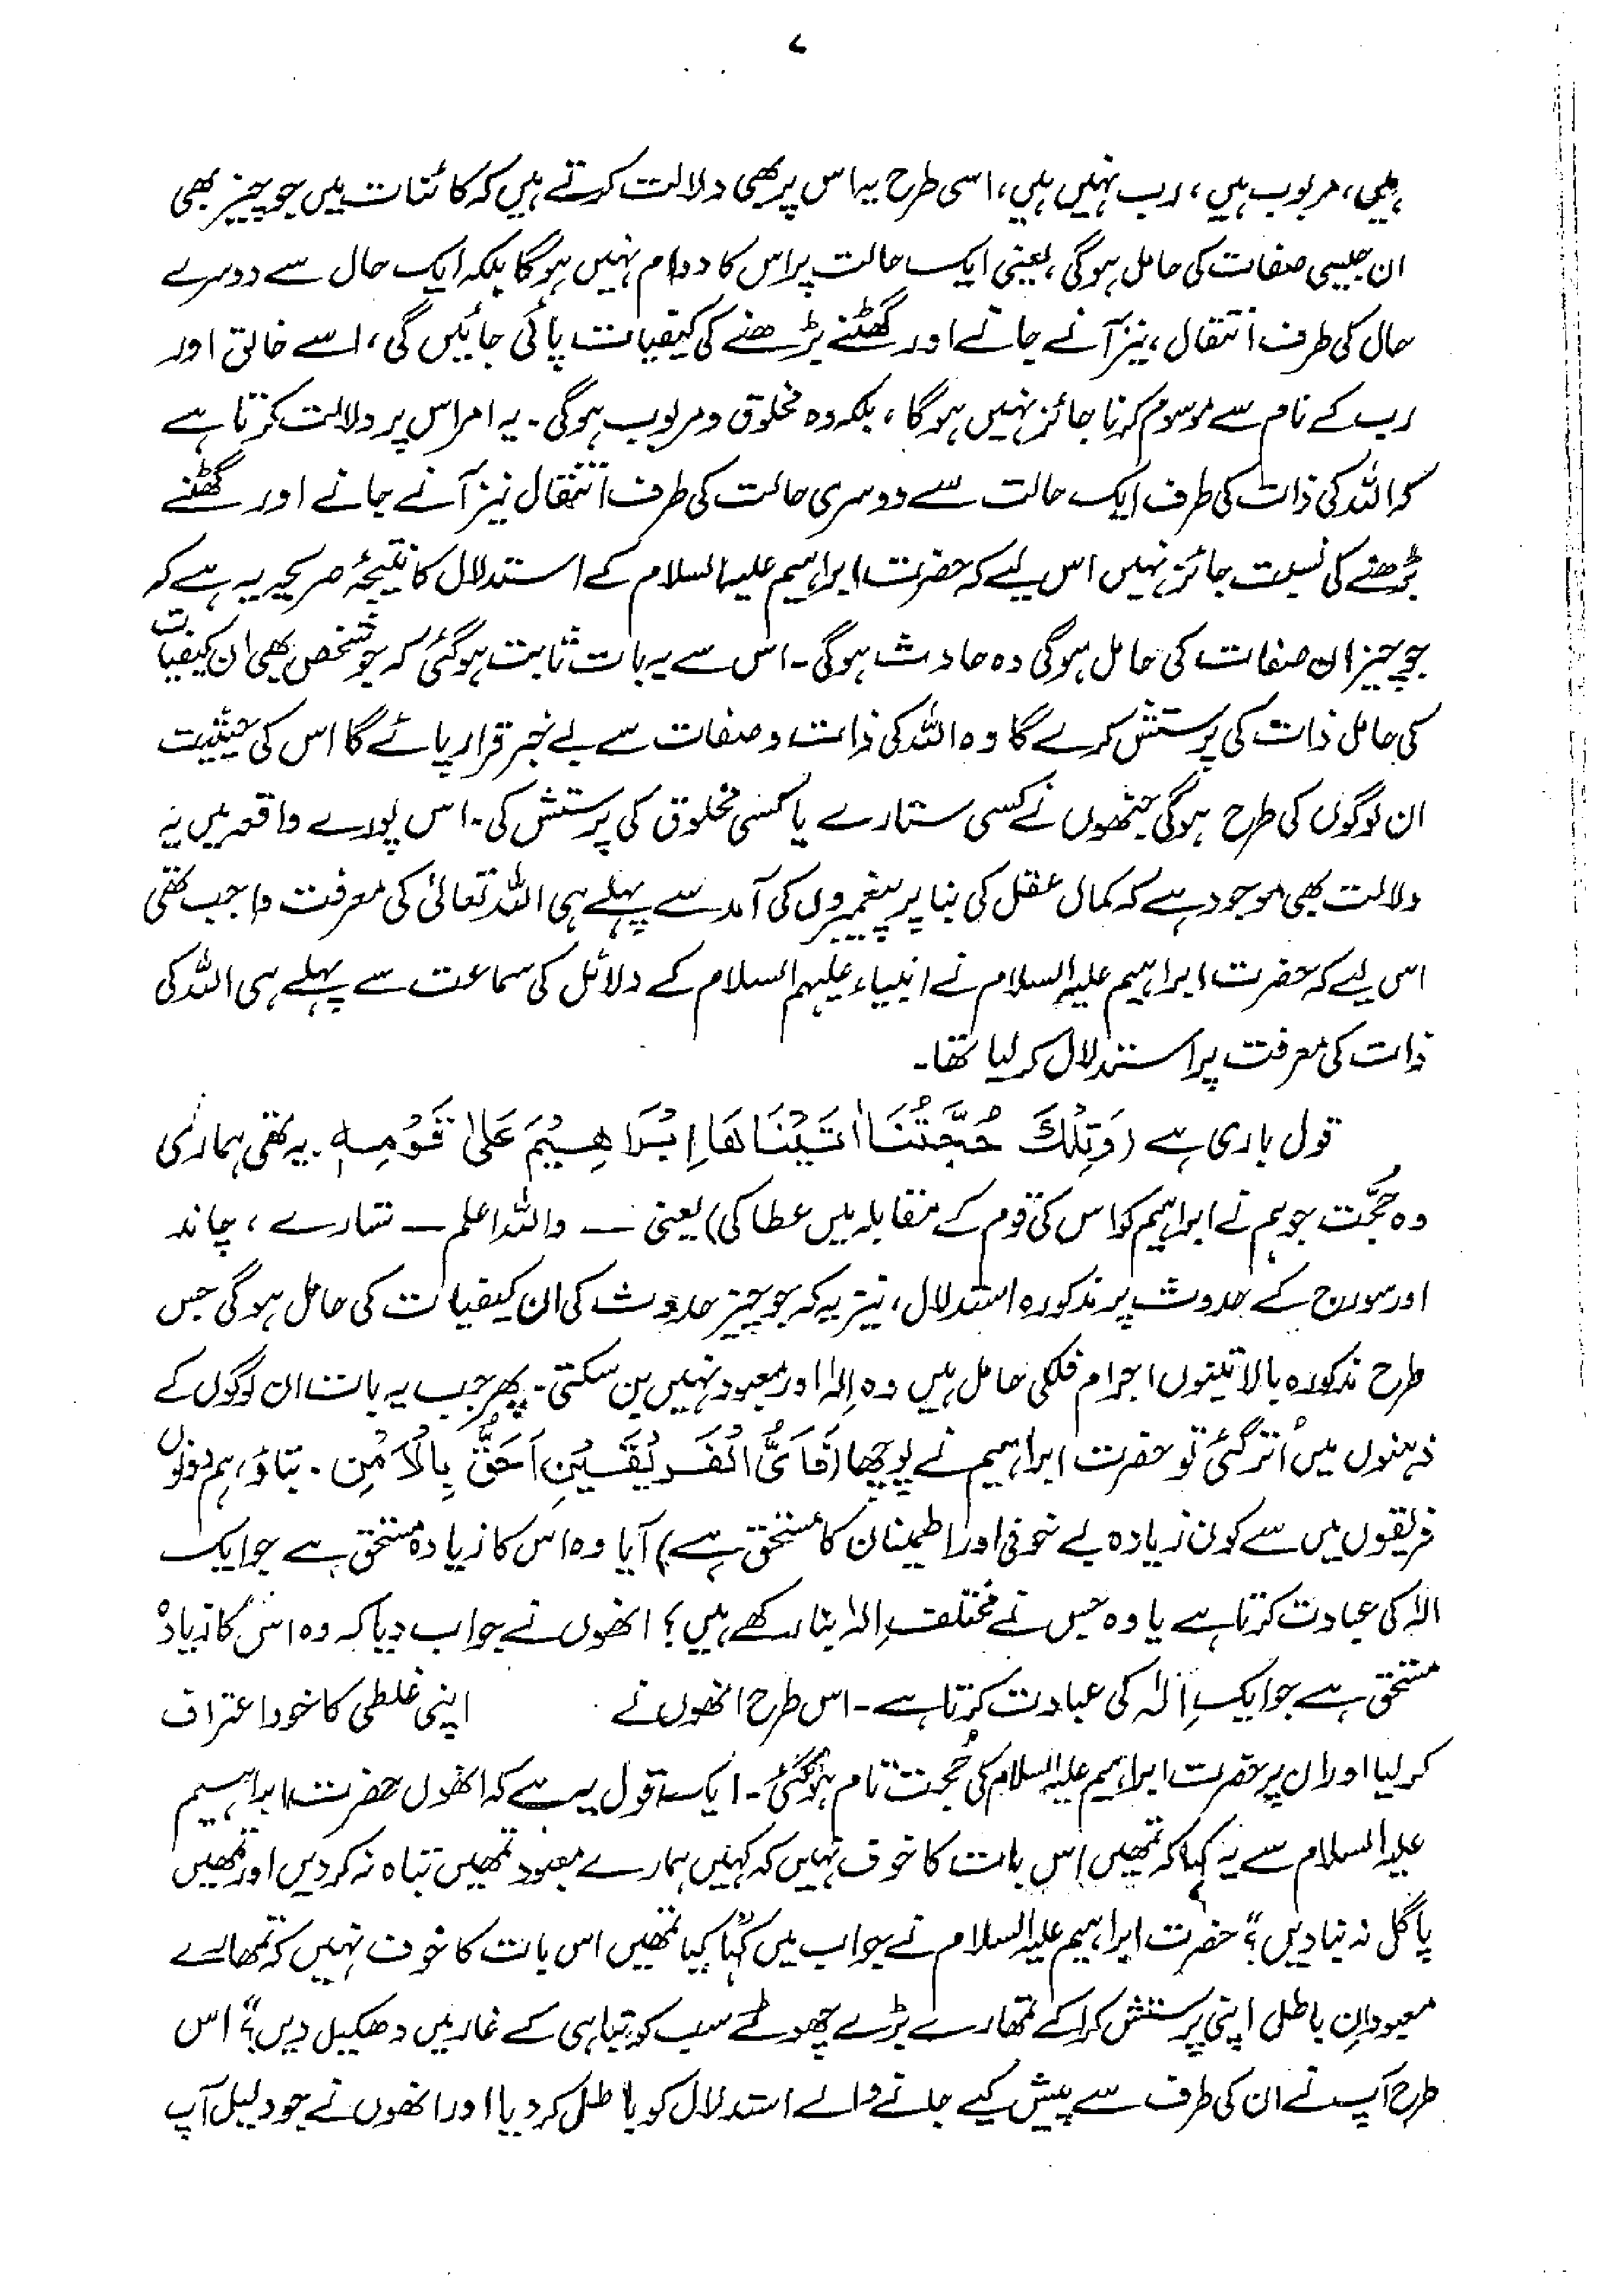 ۷
ہیں، مربوب ہیں، رب نہیں ہیں، اسی طرح یہ اس پر بھی دلالت کرتے ہیں کہ کائنات میں جو چیز بھی
ان جیسی صفات کی حامل ہوگی، یعنی ایک حالت پر اس کا دوام نہیں ہوگا بلکہ ایک حال سے دوسرے
حال کی طرف انتقال، نیز آنے جانے اور گھٹنے بڑھنے کی کیفیات پائی جائیں گی، اسے خالق اور
رب کے نام سے موسوم کرنا جائز نہیں ہوگا، بلکہ وہ مخلوق و مربوب ہوگی۔ یہ امر اس پر دلالت کرتا ہے
کہ اللہ کی ذات کی طرف ایک حالت سے دوسری حالت کی طرف انتقال نیز آنے جانے اور گھٹنے
بڑھنے کی نسبت جائز نہیں اس لیے کہ حضرت ابراہیم علیہ السلام کے استدلال کا نتیجۂ صریحہ یہ ہے کہ
جو چیز ان صفات کی حامل ہوگی وہ حادث ہوگی۔ اس سے یہ بات ثابت ہوگئی کہ جو شخص بھی ان کیفیات
کی حامل ذات کی پرستش کرے گا وہ اللہ کی ذات و صفات سے بے خبر قرار پائے گا اس کی حیثیت
ان لوگوں کی طرح ہوگی جنھوں نے کسی ستارے یا کسی مخلوق کی پرستش کی۔ اس پورے واقعہ میں یہ
دلالت بھی موجود ہے کہ کمال عقل کی بنا پر پیغمبروں کی آمد سے پہلے ہی اللہ تعالیٰ کی معرفت واجب تھی
اس لیے کہ حضرت ابراہیم علیہ السلام نے انبیاء علیہم السلام کے دلائل کی سماعت سے پہلے ہی اللہ کی
ذات کی معرفت پر استدلال کر لیا تھا۔
قول باری ہے (وَتِلْكَ حُجَّتُنَا اٰتَيْنَاهَا اِبْرَاهِيْمَ عَلىٰ قَوْمِهٖ۔ یہ تھی ہماری
وہ حُجّت جو ہم نے ابراہیم کو اس کی قوم کے مقابلہ میں عطا کی) یعنی — واللہ اعلم — ستارے، چاند
اور سورج کے حدوث پر مذکورہ استدلال، نیز یہ کہ جو چیز حدوث کی ان کیفیات کی حامل ہوگی جس
طرح مذکورہ بالا تینوں اجرام فلکی حامل ہیں وہ اِلٰہ اور معبود نہیں بن سکتی۔ پھر جب یہ بات ان لوگوں کے
ذہنوں میں اُتر گئی تو حضرت ابراہیم نے پوچھا (فَاَىُّ الْفَرِيْقَيْنِ اَحَقُّ بِالْاَمْنِ۔ بتاؤ، ہم دونوں
فریقوں میں سے کون زیادہ بے خوفی اور اطمینان کا مستحق ہے) آیا وہ اس کا زیادہ مستحق ہے جو ایک
الٰہ کی عبادت کرتا ہے یا وہ جس نے مختلف اِلٰہ بنا رکھے ہیں؟ انھوں نے جواب دیا کہ وہ اس کا زیادہ
مستحق ہے جو ایک اِلٰہ کی عبادت کرتا ہے۔ اس طرح انھوں نے اپنی غلطی کا خود اعتراف
کر لیا اور ان پر حضرت ابراہیم علیہ السلام کی حُجت تام ہوگئی۔ ایک قول ہے کہ انھوں حضرت ابراہیم
علیہ السلام سے یہ کہا کہ تمھیں اس بات کا خوف نہیں کہ کہیں ہمارے معبود تمھیں تباہ نہ کردیں اور تمھیں
پاگل نہ بنا دیں؟" حضرت ابراہیم علیہ السلام نے جواب میں کہا "کیا تمھیں اس بات کا خوف نہیں کہ تمھارے
معبودانِ باطل اپنی پرستش کرا کے تمھارے بڑے چھوٹے سب کو تباہی کے غار میں دھکیل دیں؟" اس
طرح آپ نے ان کی طرف سے پیش کیے جانے والے استدلال کو باطل کر دیا اور انھوں نے جو دلیل آپ